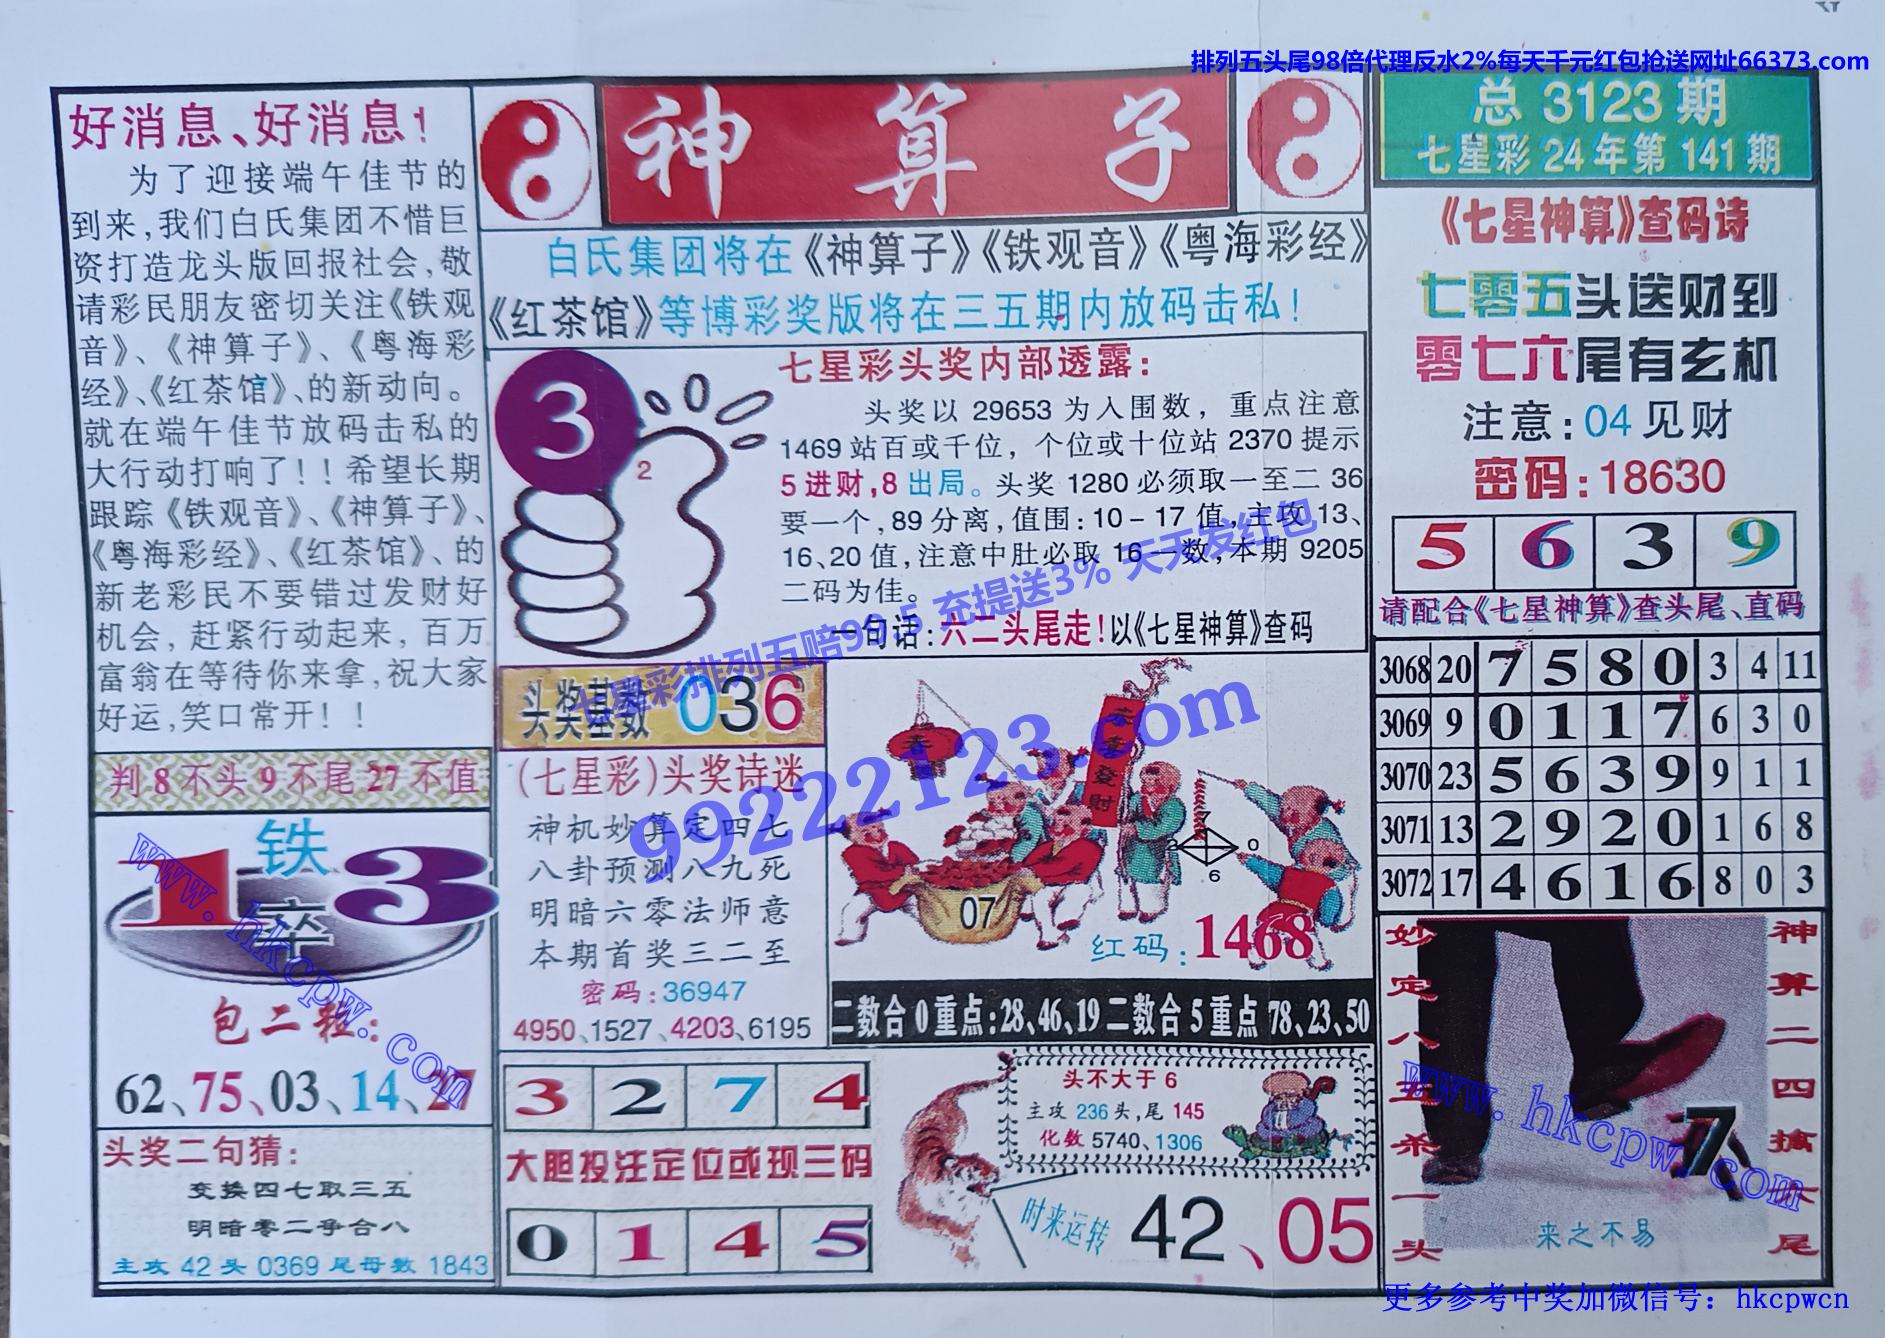 排列五头尾98倍代理反水2%每天千元红包抢送网址66373.com
好消息、好消息!
为了迎接端午佳节的
到来,我们白氏集团不惜巨
资打造龙头版回报社会,敬
请彩民朋友密切关注《铁观
音》、《神算子》、《粤海彩
经》、《红茶馆》、的新动向。
就在端午佳节放码击私的
大行动打响了!!希望长期
跟踪《铁观音》、《神算子》、
《粤海彩经》、《红茶馆》、的
新老彩民不要错过发财好
机会,赶紧行动起来,百万
富翁在等待你来拿,祝大家
好运,笑口常开!!
判8不头9不尾27不值
铁
1 3
卒
包二粒:
62、75、03、14、27
头奖二句猜:
变换四七取三五
明暗零二争合八
主攻42头0369尾母数1843
神算子
白氏集团将在《神算子》《铁观音》《粤海彩经》
《红茶馆》等博彩奖版将在三五期内放码击私!
3
2
七星彩头奖内部透露:
头奖以29653为入围数,重点注意
1469站百或千位,个位或十位站2370提示
5进财,8出局。头奖1280必须取一至二36
要一个,89分离,值围:10-17值,主攻13、
16、20值,注意中肚必取16一数,本期9205
二码为佳。
一句话:六二头尾走!以《七星神算》查码
七星彩排列五赔99.5 充提送3% 天天发红包
头奖基数 036
(七星彩)头奖诗迷
神机妙算定四七
八卦预测八九死
明暗六零法师意
本期首奖三二至
密码:36947
4950、1527、4203、6195
春
恭喜發財
07
2 0
6
红码:1468
99222123.com
二数合0重点:28、46、19二数合5重点78、23、50
3 2 7 4
大胆投注定位或现三码
0 1 4 5
头不大于6
主攻236头,尾145
化数5740、1306
时来运转
42、05
总3123期
七星彩24年第141期
《七星神算》查码诗
七零五头送财到
零七六尾有玄机
注意:04见财
密码:18630
5 6 3 9
请配合《七星神算》查头尾、直码
3068 20 7 5 8 0 3 4 11
3069 9 0 1 1 7 6 3 0
3070 23 5 6 3 9 9 1 1
3071 13 2 9 2 0 1 6 8
3072 17 4 6 1 6 8 0 3
神算二四擒一尾
妙定八五杀一头
7
来之不易
www.hkcpw.com
www.hkcpw.com
更多参考中奖加微信号: hkcpwcn